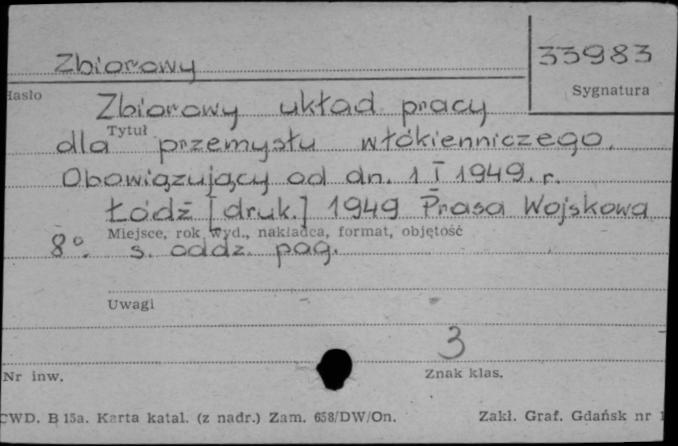 Zbiorowy
33983
Sygnatura
Hasło
Zbiorowy układ pracy
Tytuł
dla przemysłu włókienniczego.
Obowiązujący od dn. 1 I 1949. r.
Łódź [druk.] 1949 Prasa Wojskowa
Miejsce, rok wyd., nakładca, format, objętość
8°. s. oddz. pag.
Uwagi
3
Nr inw.
Znak klas.
CWD. B 15a. Karta katal. (z nadr.) Zam. 658/DW/On.
Zakł. Graf. Gdańsk nr 1